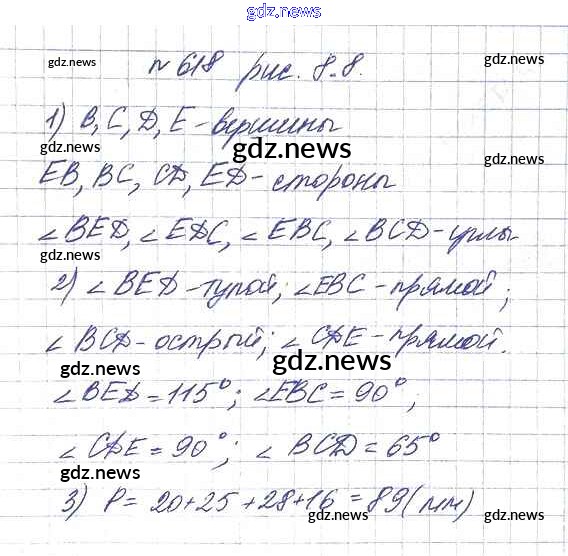 gdz.news
№ 618 рис. 8.8.
gdz.news gdz.news
1) B, C, D, E - вершины
gdz.news gdz.news gdz.news
EB, BC, CD, ED - стороны
∠BED, ∠EDC, ∠EBC, ∠BCD - углы
gdz.news gdz.news
2) ∠BED - тупой; ∠EBC - прямой;
∠BCD - острый; ∠CDE - прямой.
gdz.news gdz.news
∠BED = 115°; ∠EBC = 90°;
∠CDE = 90°; ∠BCD = 65°
gdz.news
3) P = 20+25+28+16 = 89 (мм)
gdz.news gdz.news